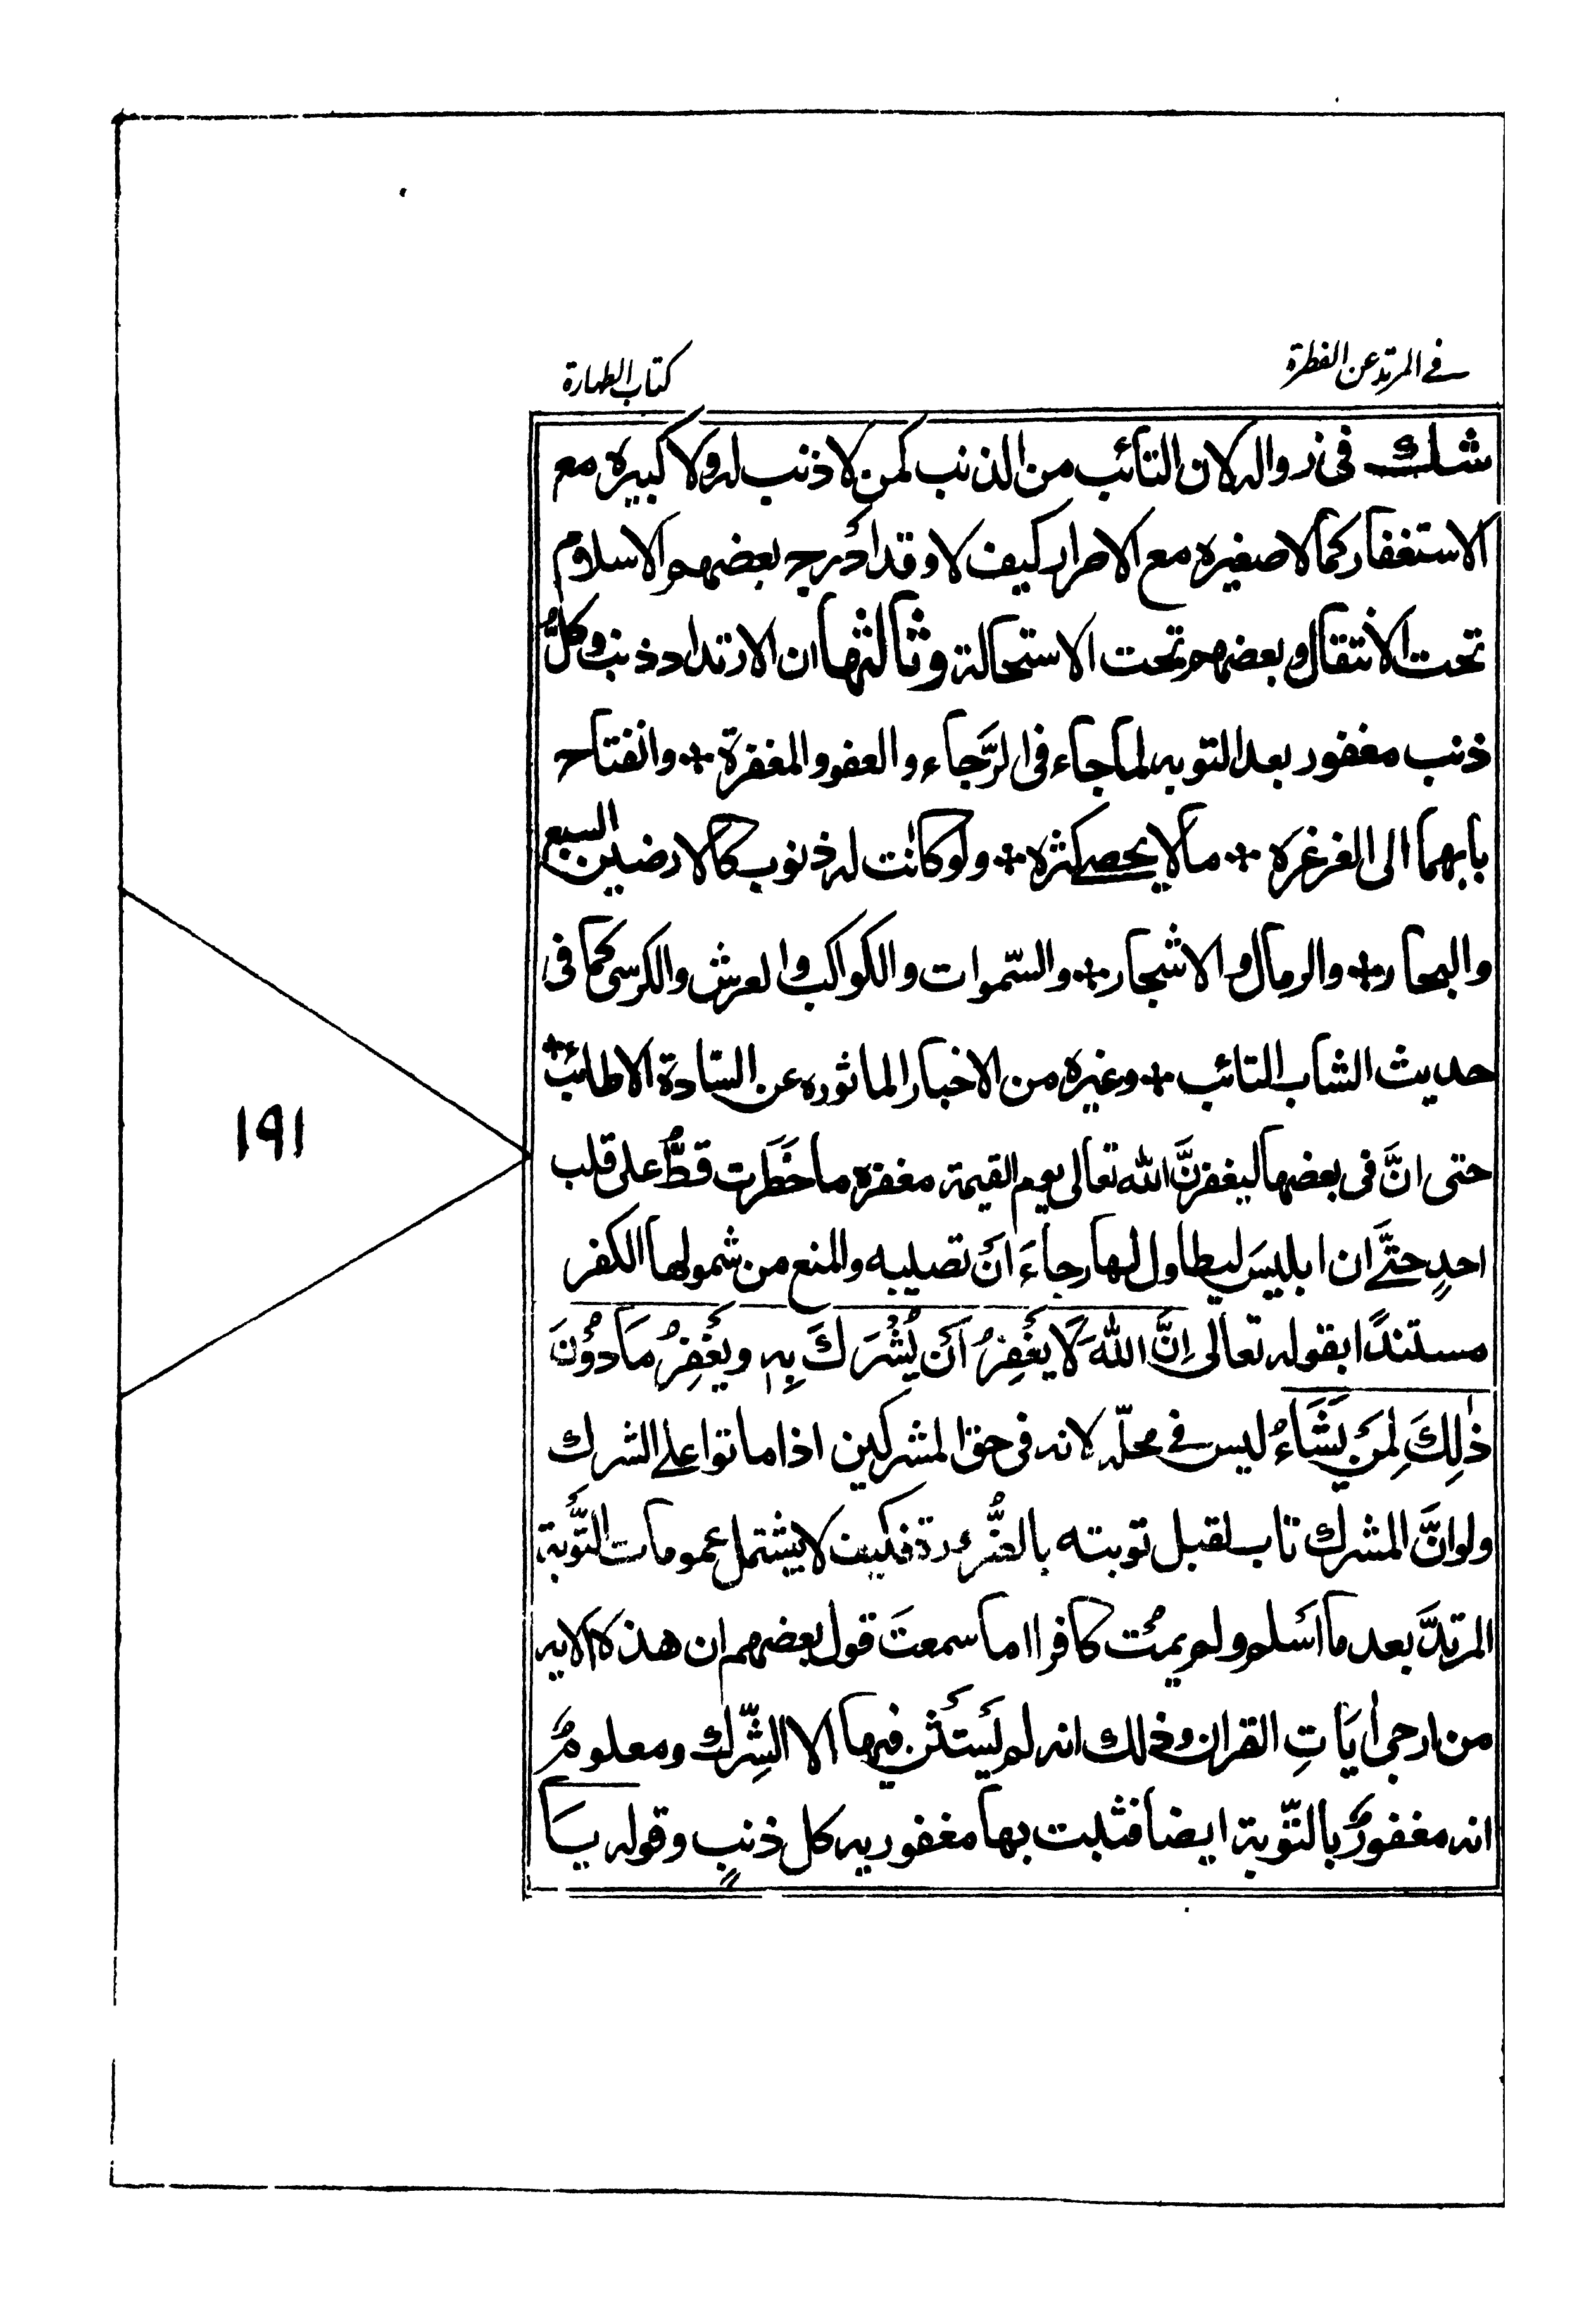 في المرتد عن الفطرة
كتاب الطهارة
شك فى زواله لان التائب من الذنب كمن لا ذنب له ولا كبيره مع
الاستغفار كما لا صغيره مع الاصرار كيف لا وقد أدرج بعضهم الاسلام
تحت الأنتقال وبعضهم تحت الاستحالة وثالثها ان الارتداد ذنب وكلُّ
ذنب مغفور بعد التوبه لما جاء فى الرَّجاء والعفو والمغفرة + وانفتاح
بابهما الى الغرغره + ما لا يحصى كثره + ولو كانت له ذنوب كالارضين السبع
والبحار + والرمال والاشجار + والسّموات والكواكب والعرش والكرسى كما فى
حديث الشاب التائب + وغيره من الاخبار الماثوره عن السّادة الاطائب +
حتى انَّ فى بعضها ليغفرنَّ الله تعالى يوم القيمة مغفره ما خَطَرت قطُّ على قلب
احدٍ حتَّى ان ابليسَ ليطاول لها رجاءَ أن تصليبه والمنع من شمولها الكفر
مستندًا بقوله تعالى اِنَّ اللهَ لَا يَغْفِرُ اَنْ يُشْرَكَ بِهٖ ويَغْفِرُ مَا دُوْنَ
ذٰلِكَ لِمَنْ يَشَاءُ ليس في محلّه لانه فى حق المشركين اذا ماتوا على الشرك
ولو انَّ المشرك تاب لقبل توبته بالضُّرورة فكيف لا يشتمل عمومات التَّوبة
المرتدَّ بعد ما اَسلم ولم يمُت كافرا اما سمعتَ قول بعضهم ان هذه الايه
من ارجى ايَاتِ القران وذلك انه لم يَستَثن فيها الا الشِّرك ومعلومٌ
انه مغفورٌ بالتّوبة ايضا فثبت بها مغفوريه كل ذنبٍ وقوله يَا
١٩١